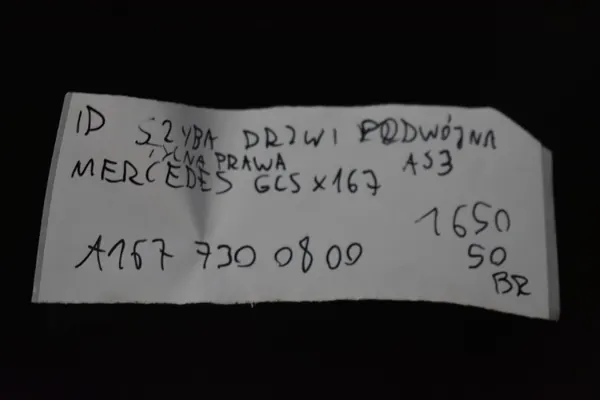 ID SZYBA DRZWI PODWÓJNA
TYLNA PRAWA AS3
MERCEDES GLS X167
1650
A167 730 08 00 50
BR